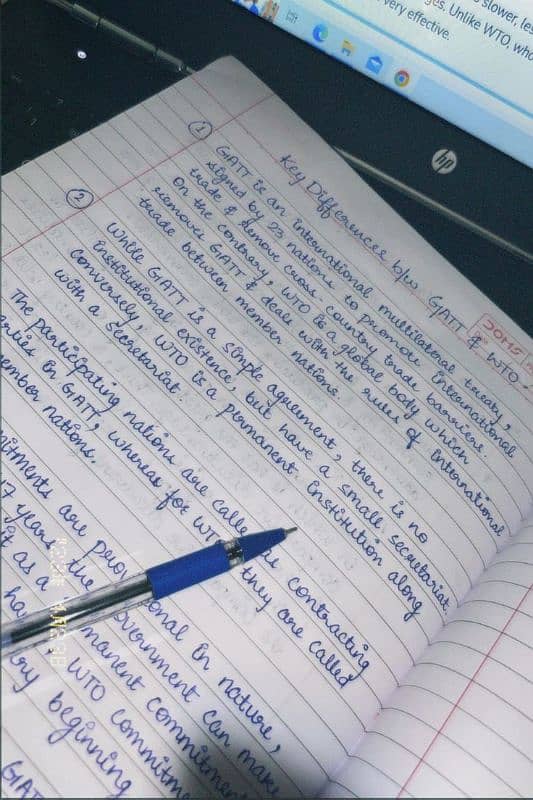 slower, les
ges. Unlike WTO, who
very effective.
hp
DOMS
Key Differences b/w GATT & WTO.
① GATT is an international multilateral treaty,
signed by 23 nations to promote international
trade & remove cross-country trade barriers.
On the contrary, WTO is a global body which
removes GATT & deals with the rules of international
trade between member nations.
② While GATT is a simple agreement, there is no
institutional existence, but have a small secretariat.
Conversely, WTO is a permanent institution along
with a secretariat.
The participating nations are calle as contracting
arties in GATT, whereas for WT they are called
ember nations.
mitments are provi onal in nature,
7 years the overnment can make
it as a manent commitment
ha WTO commitme
ry beginning
GAT